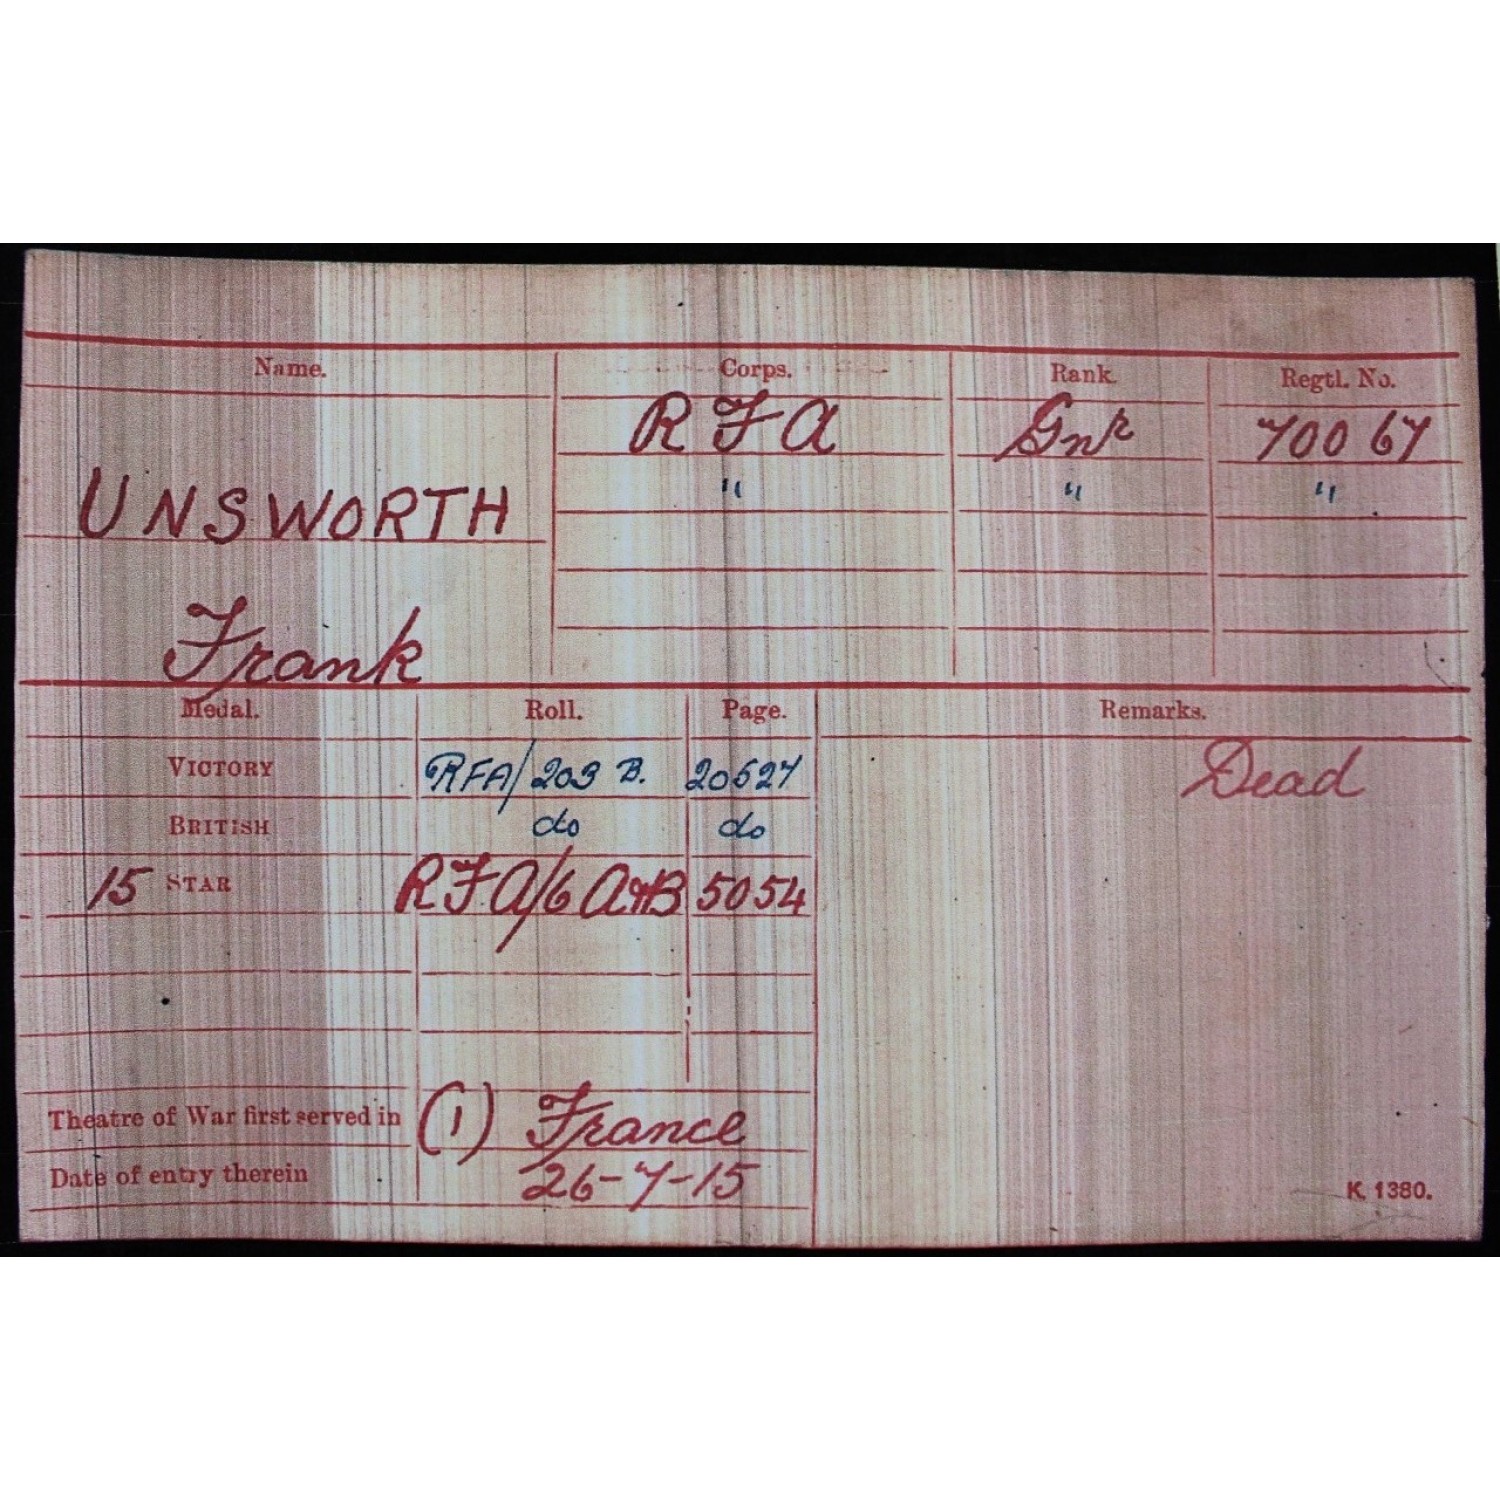 Name. Corps. Rank. Regtl. No.
R F A Gnr 70067
UNSWORTH " " "
Frank
Medal. Roll. Page. Remarks.
VICTORY RFA/203 B. 20527 Dead
BRITISH do do
15 STAR RFA/6 A&B 5054
Theatre of War first served in (1) France
Date of entry therein 26-7-15
K. 1380.